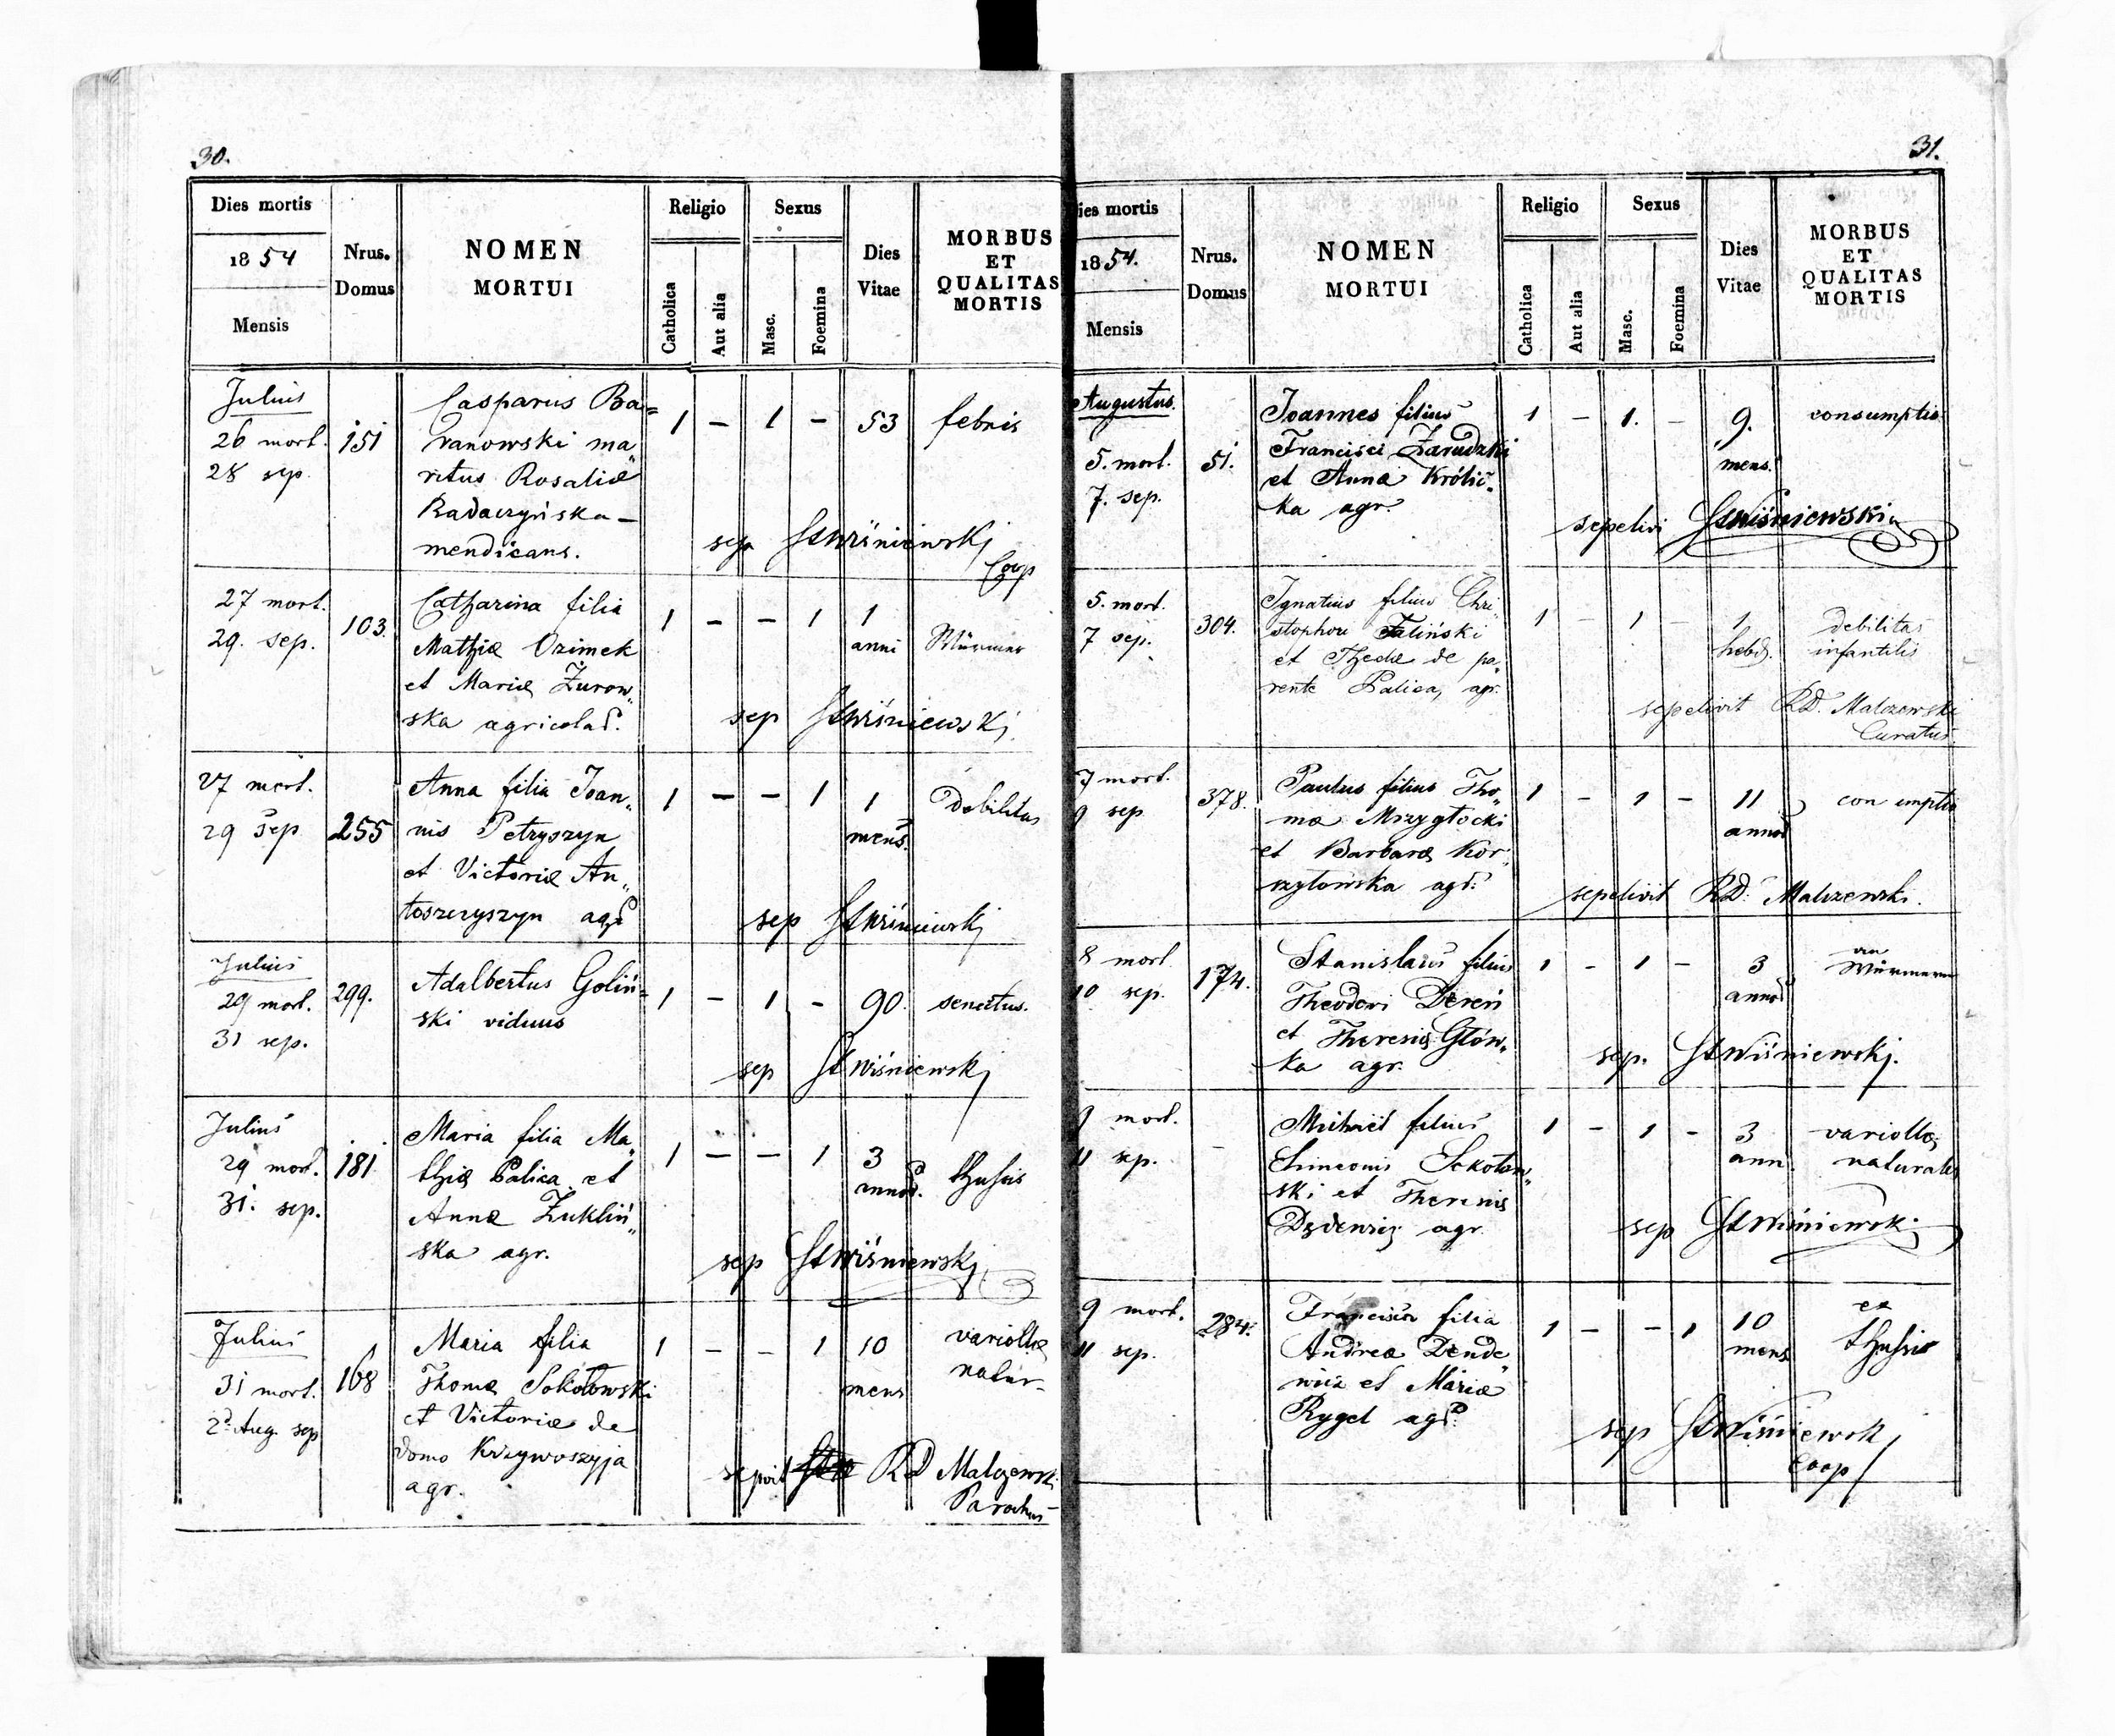 30.
Dies mortis
1854
Mensis
Nrus.
Domus
NOMEN
MORTUI
Religio
Catholica
Aut alia
Sexus
Masc.
Foemina
Dies
Vitae
MORBUS
ET
QUALITAS
MORTIS
Julius
26 mort.
28 sep.
151
Casparus Ba=
ranowski ma„
ritus Rosaliæ
Radaczyńska –
mendicans.
1 – 1 – 53 febris
sep StWiśniewskj
Coop
27 mort.
29. sep.
103.
Catharina filia
Mathiæ Ozimek
et Mariæ Żurow„
ska agricolar.
1 – – 1 1
anni
Würmer
sep StWiśniewskj
27 mort.
29 sep
255
Anna filia Joan„
nis Petryszyn
et Victoriæ An„
toszczyszyn agr
1 – – 1 1
mens.
Debilitas
sep StWiśniewskj
Julius
29 mort.
31 sep.
299.
Adalbertus Goliń=
ski viduus
1 – 1 – 90. senectus.
sep StWiśniewskj
Julius
29 mort.
31. sep.
181
Maria filia Ma„
thiæ Palica et
Annæ Żukliń„
ska agr.
1 – – 1 3
annor.
thussis
sep StWiśniewskj
Julius
31 mort.
2 Aug. sep
168
Maria filia
Thomæ Sokołowski
et Victoriæ de
domo Krzywoszyja
agr.
1 – – 1 10
mens
variollæ
natur.
sepvit RD Malczewski
Parochus
31.
ies mortis
1854.
Mensis
Nrus.
Domus
NOMEN
MORTUI
Religio
Catholica
Aut alia
Sexus
Masc.
Foemina
Dies
Vitae
MORBUS
ET
QUALITAS
MORTIS
Augustus.
5. mort.
7. sep.
51.
Joannes filius
Francisci Zarudzki
et Annæ Królic„
ka agr.
1 – 1. – 9.
mens.
consumptio
sepelivi StWiśniewski
5. mort.
7 sep.
304.
Ignatius filius Chri„
stophori Faliński
et Theclæ de pa„
rente Palica, agr.
1 – 1 – 1
hebd.
debilitas
infantilis
sepelivit RD. Malczewski
Curatus.
7 mort.
9 sep
378.
Paulus filius Tho„
mæ Mrzygłocki
et Barbaræ Kor„
1 – 1 – 11
annor
sepelivit RD. Malczewski.
8 mort
10 sep.
174.
Stanislaus filius
Theodori Dereń
et Theresiæ Głów„
ka agr.
1 – 1 – 3
annor
Würmern
sep. StWiśniewskj.
9 mort.
11 sep.
–
Michael filius
Simeonis Sokołow„
ski et Theresiæ
agr
1 – 1 – 3
ann.
variollæ
naturales
sep StWiśniewskj
9 mort.
11 sep.
284.
Francisca filia
Andreæ Dende„
wicz et Mariæ
Rygel agr.
1 – – 1 10
mens
ex
thussis
sep StWiśniewsk
Coop